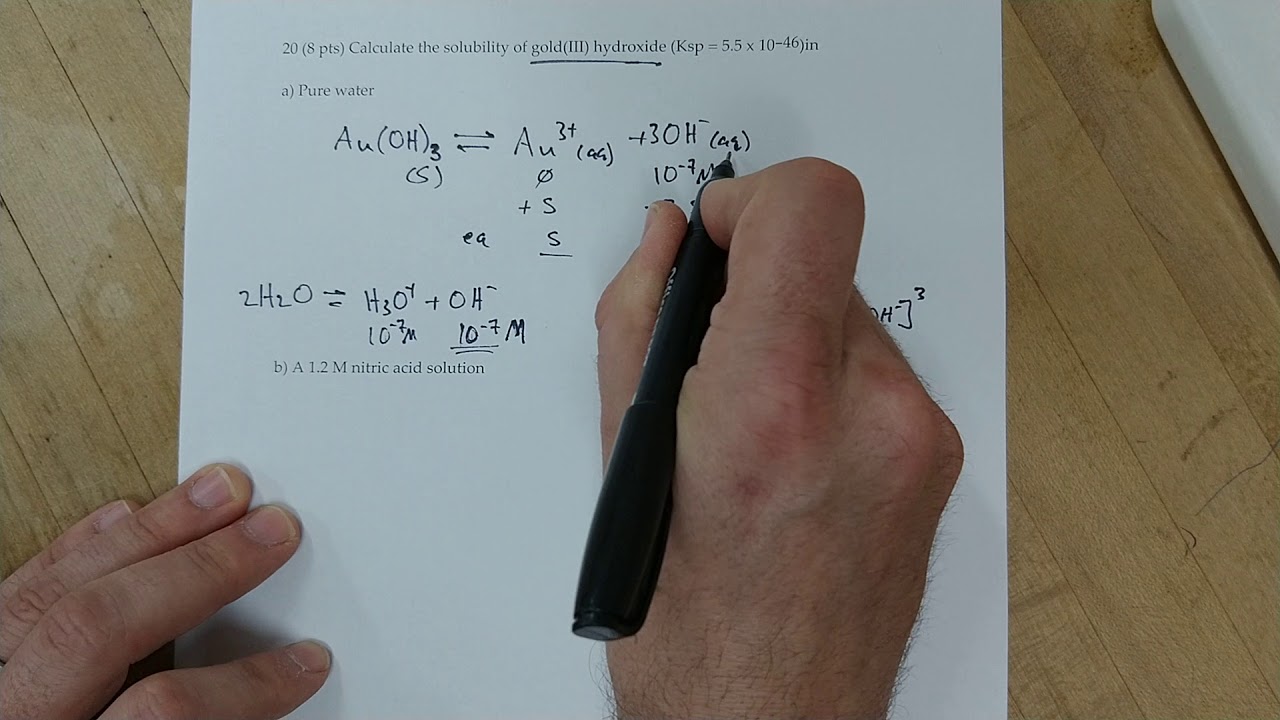 20 (8 pts) Calculate the solubility of gold(III) hydroxide (Ksp = 5.5 x 10−46)in
a) Pure water
Au(OH)3 ⇌ Au3+(aq) +3OH-(aq)
(s) ø 10-7M
+ S
eq S
2H2O ⇌ H3O+ + OH-
10-7M 10-7 M
OH-]3
b) A 1.2 M nitric acid solution